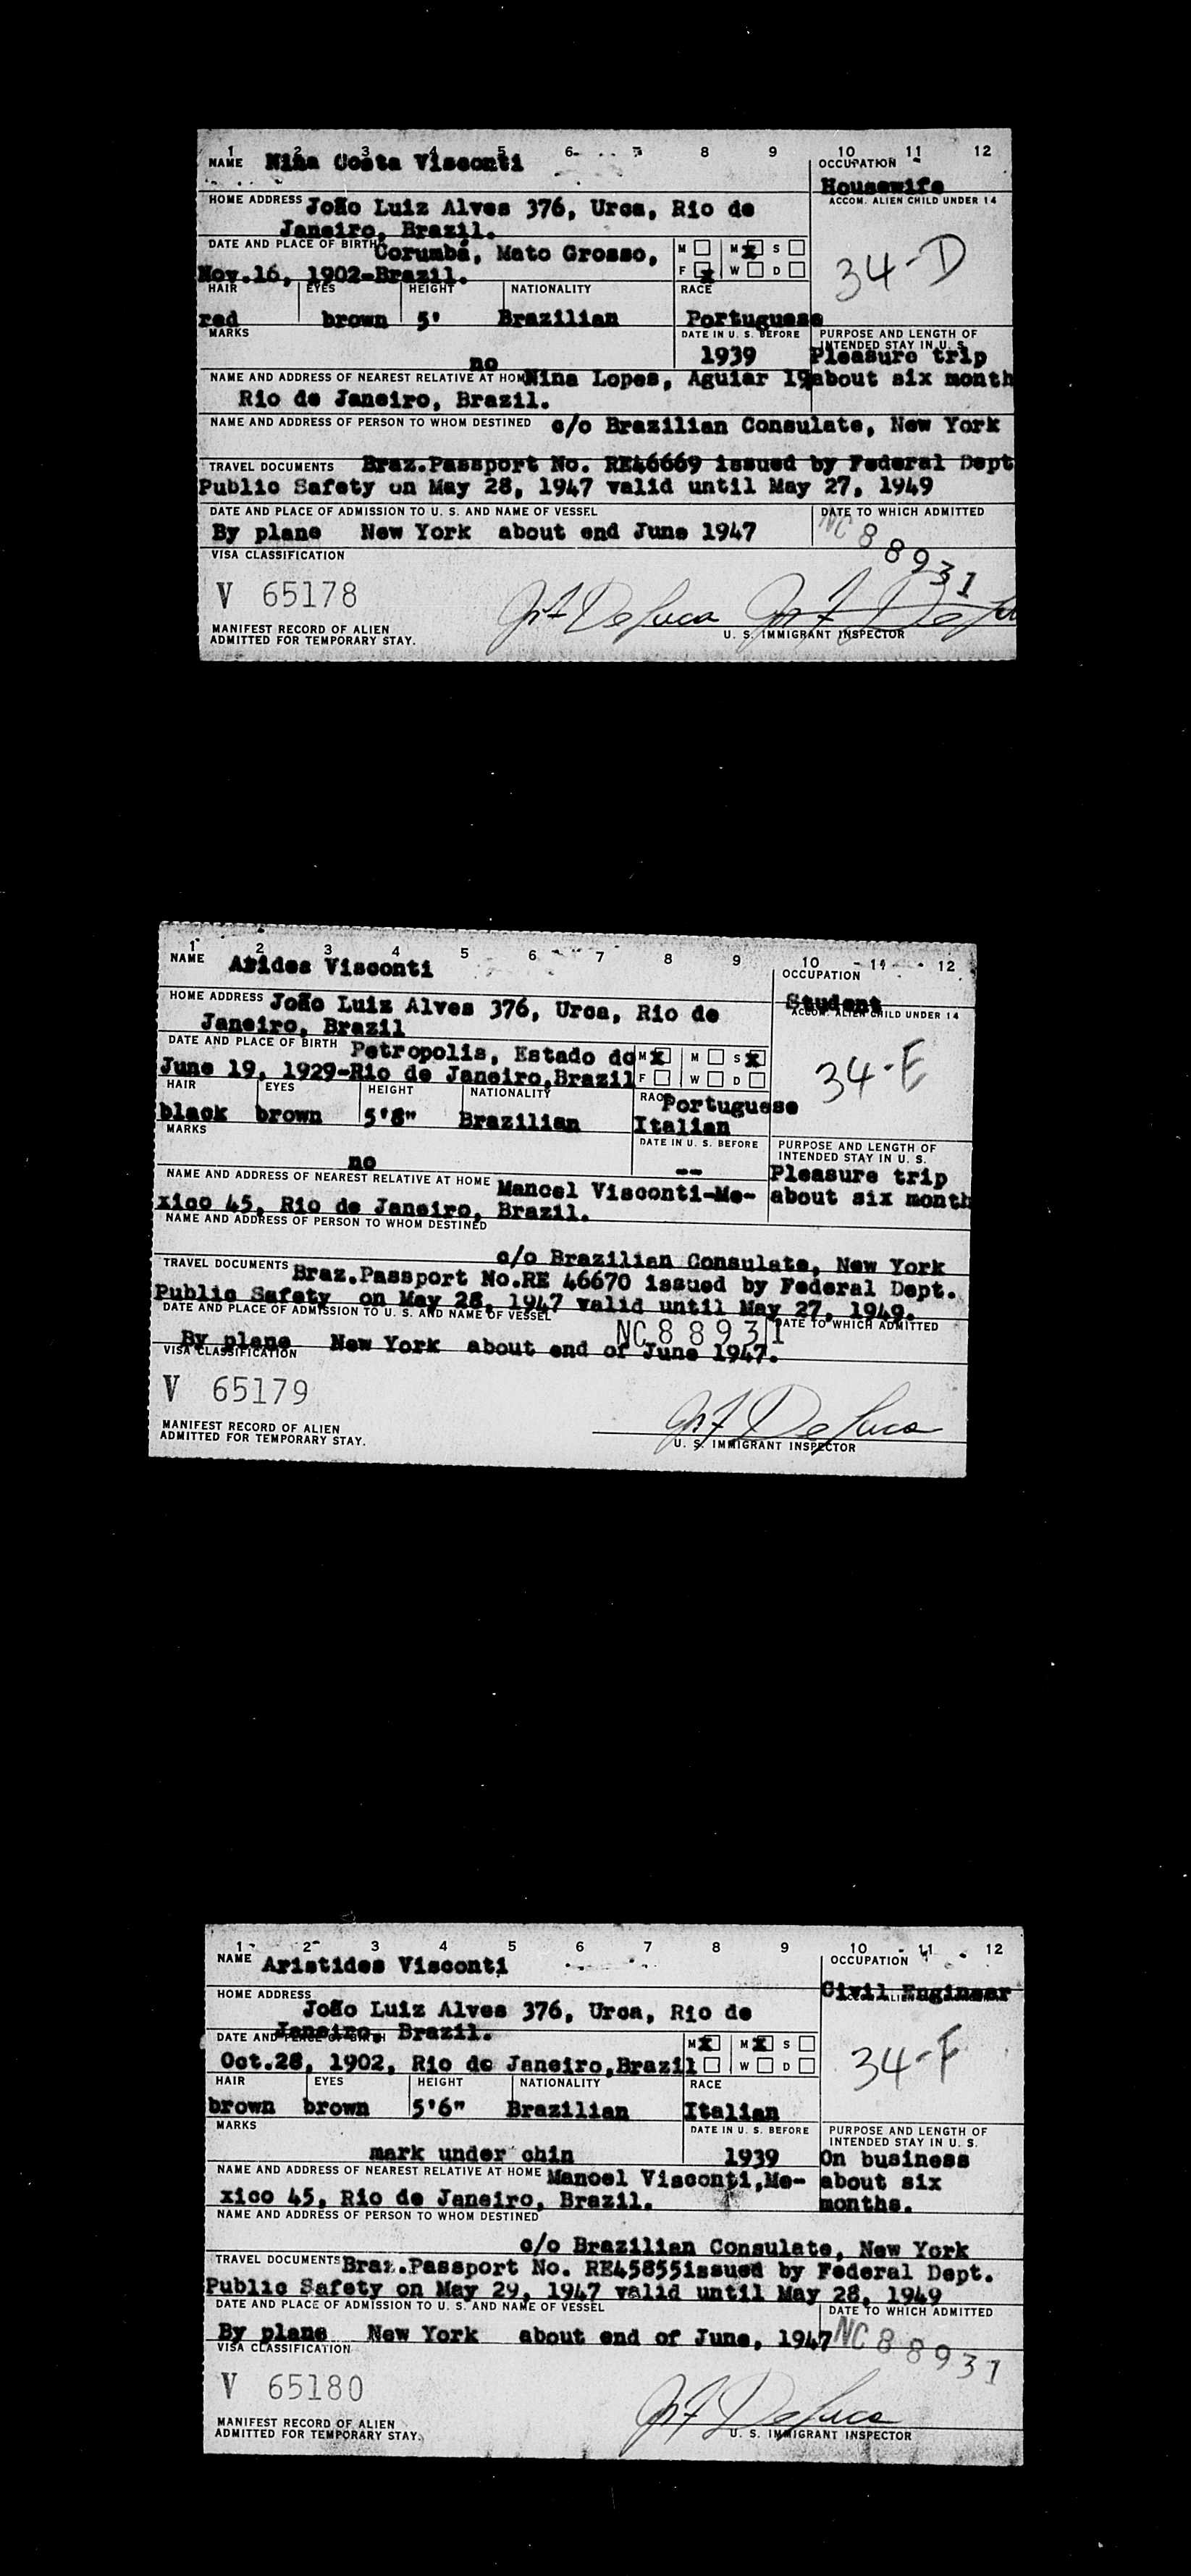 1 2 3 4 5 6 7 8 9 10 11 12
NAME Nina Costa Visconti OCCUPATION
Housewife
HOME ADDRESS João Luiz Alves 376, Urca, Rio de ACCOM. ALIEN CHILD UNDER 14
Janeiro, Brazil.
DATE AND PLACE OF BIRTH Corumbá, Mato Grosso, M M S
Nov.16, 1902-Brazil. F W D
34-D
HAIR EYES HEIGHT NATIONALITY RACE
red brown 5' Brazilian Portuguese
MARKS DATE IN U. S. BEFORE PURPOSE AND LENGTH OF
INTENDED STAY IN U. S.
no 1939 Pleasure trip
NAME AND ADDRESS OF NEAREST RELATIVE AT HOME Nina Lopes, Aguiar 19 about six month
Rio de Janeiro, Brazil.
NAME AND ADDRESS OF PERSON TO WHOM DESTINED c/o Brazilian Consulate, New York
TRAVEL DOCUMENTS Braz.Passport No. RE46669 issued by Federal Dept
Public Safety on May 28, 1947 valid until May 27, 1949
DATE AND PLACE OF ADMISSION TO U. S. AND NAME OF VESSEL DATE TO WHICH ADMITTED
By plane New York about end June 1947 NC 88931
VISA CLASSIFICATION
V 65178
MANIFEST RECORD OF ALIEN
ADMITTED FOR TEMPORARY STAY.
U. S. IMMIGRANT INSPECTOR
1 2 3 4 5 6 7 8 9 10 11 12
NAME Arides Visconti OCCUPATION
Student
HOME ADDRESS João Luiz Alves 376, Urca, Rio de ACCOM. ALIEN CHILD UNDER 14
Janeiro, Brazil
DATE AND PLACE OF BIRTH Petropolis, Estado do M M S
June 19, 1929-Rio de Janeiro,Brazil F W D
34-E
HAIR EYES HEIGHT NATIONALITY RACE Portuguese
black brown 5'8" Brazilian Italian
MARKS DATE IN U. S. BEFORE PURPOSE AND LENGTH OF
INTENDED STAY IN U. S.
no -- Pleasure trip
NAME AND ADDRESS OF NEAREST RELATIVE AT HOME Manoel Visconti-Me- about six month
xico 45, Rio de Janeiro, Brazil.
NAME AND ADDRESS OF PERSON TO WHOM DESTINED
c/o Brazilian Consulate, New York
TRAVEL DOCUMENTS Braz.Passport No.RE 46670 issued by Federal Dept.
Public Safety on May 28, 1947 valid until May 27, 1949.
DATE AND PLACE OF ADMISSION TO U. S. AND NAME OF VESSEL NC 88931 DATE TO WHICH ADMITTED
By plane New York about end of June 1947.
VISA CLASSIFICATION
V 65179
MANIFEST RECORD OF ALIEN
ADMITTED FOR TEMPORARY STAY.
U. S. IMMIGRANT INSPECTOR
1 2 3 4 5 6 7 8 9 10 11 12
NAME Aristides Visconti OCCUPATION
Civil Engineer
HOME ADDRESS
João Luiz Alves 376, Urca, Rio de
Janeiro, Brazil.
DATE AND PLACE OF BIRTH M M S
Oct.28, 1902, Rio de Janeiro,Brazil W D
34-F
HAIR EYES HEIGHT NATIONALITY RACE
brown brown 5'6" Brazilian Italian
MARKS DATE IN U. S. BEFORE PURPOSE AND LENGTH OF
INTENDED STAY IN U. S.
mark under chin 1939 On business
NAME AND ADDRESS OF NEAREST RELATIVE AT HOME Manoel Visconti,Me- about six
xico 45, Rio de Janeiro, Brazil. months.
NAME AND ADDRESS OF PERSON TO WHOM DESTINED
c/o Brazilian Consulate, New York
TRAVEL DOCUMENTS Braz.Passport No. RE45855issued by Federal Dept.
Public Safety on May 29, 1947 valid until May 28, 1949
DATE AND PLACE OF ADMISSION TO U. S. AND NAME OF VESSEL DATE TO WHICH ADMITTED
By plane New York about end of June, 1947 NC 88931
VISA CLASSIFICATION
V 65180
MANIFEST RECORD OF ALIEN
ADMITTED FOR TEMPORARY STAY.
U. S. IMMIGRANT INSPECTOR